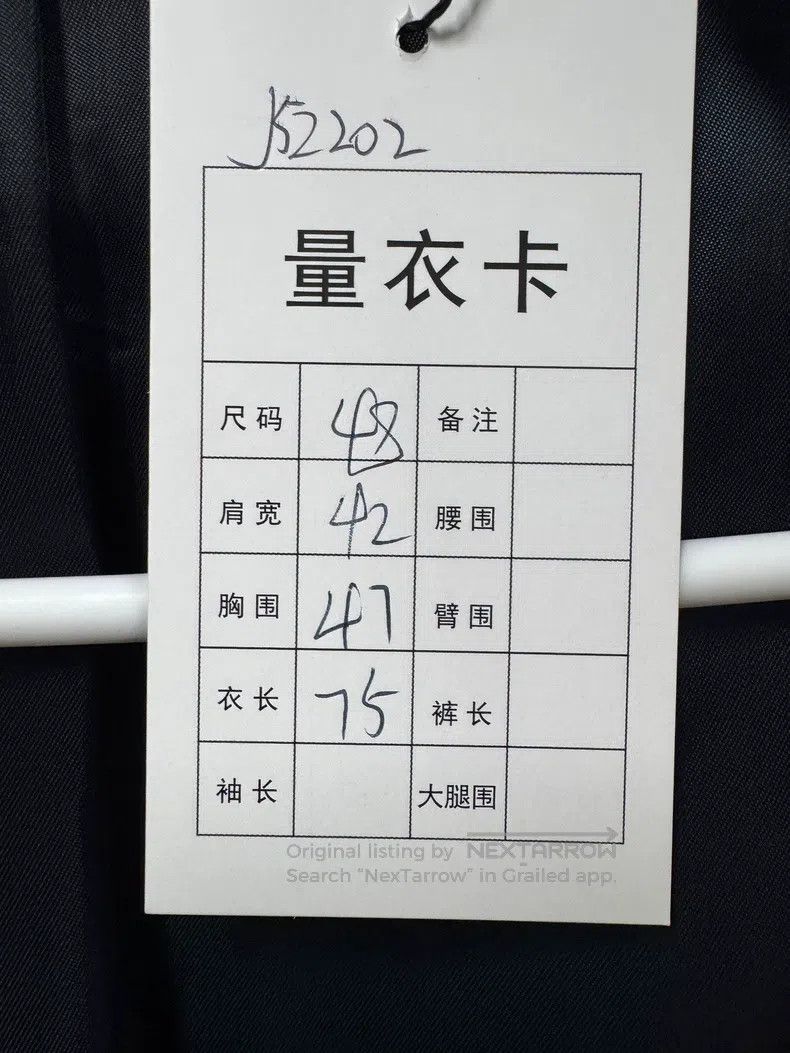 J52202
量衣卡
尺码 48 备注
肩宽 42 腰围
胸围 47 臂围
衣长 75 裤长
袖长 大腿围
Original listing by NEXTARROW
Search "NexTarrow" in Grailed app.